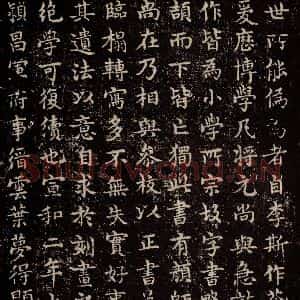 世所能偽為者自李斯作蒼
爰歷博學凡將元尚與急就
作皆為小學所宗故字書
頡而下皆亡獨此書有顏師
尚在乃相與參校以正書
臨搨轉寫多不無失實好事
其遺法以意自求於刻畫
絕學可復續也宣和二年
潁昌軍府事縉雲葉夢得題